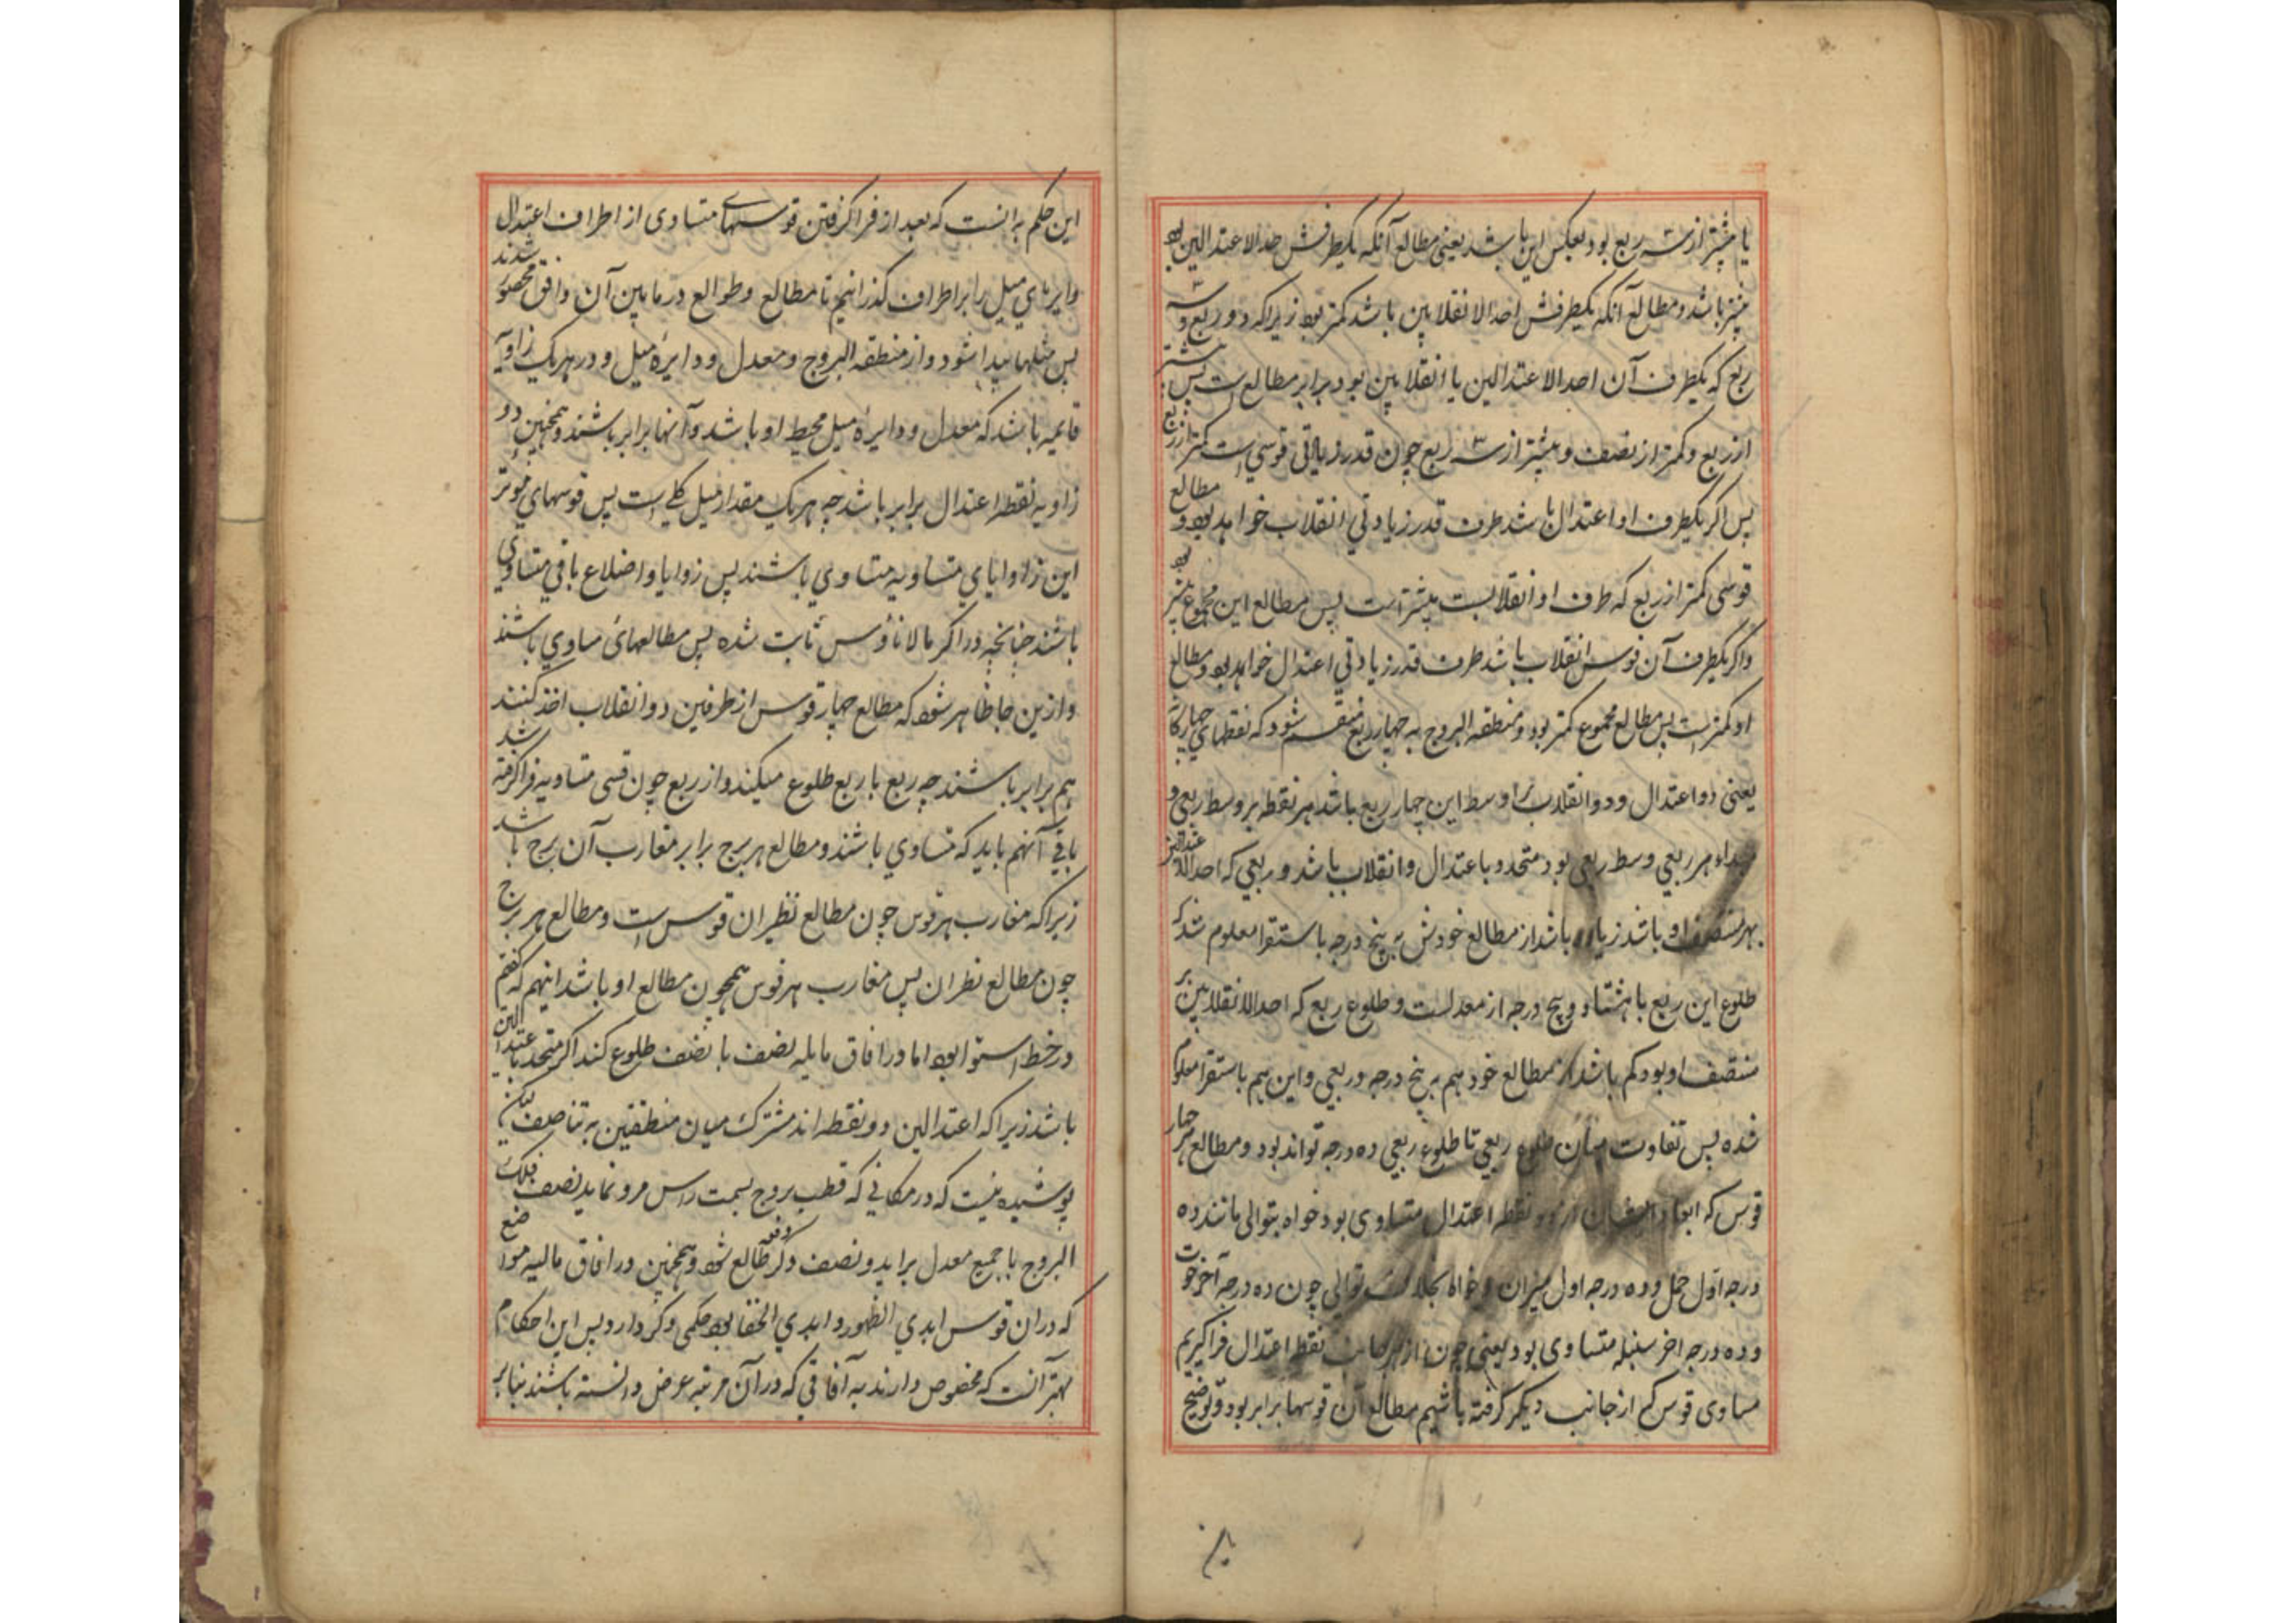 یا بیشتر از سه ربع بود بعکس این باشد یعنی مطالع آنکه یکطرفش احد الاعتدالین بود
بیشتر باشد و مطالع آنکه یکطرفش احد الانقلابین باشد کمتر بود زیرا که دو ربع و سه
ربع که یکطرف آن احد الاعتدالین یا انقلابین بود برابر مطالع است پس بیشتر
از ربع و کمتر از نصف و بیشتر از سه ربع چون قدر زیادتی قوسی است کمتر از ربع
پس اگر یکطرف او اعتدال باشد طرف قدر زیادتی انقلاب خواهد بود و مطالع
قوسی کمتر از ربع که طرف او انقلابست بیشتر است پس مطالع این مجموع بیشتر بود
واگر یکطرف آن قوس انقلاب باشد طرف قدر زیادتی اعتدال خواهد بود و مطالع
او کمتر است پس مطالع مجموع کمتر بود و منطقه البروج به چهار ربع منقسم شود که نقطهای چهارگانه
یعنی دو اعتدال و دو انقلاب بر اوسط این چهار ربع باشد هر نقطه بر وسط ربعی و
مبداء هر ربعی وسط ربعی بود متحدد باعتدال وانقلاب باشد و ربعی که احد الاعتدالین
بهر منتصف او باشد زیاده باشد از مطالع خودش به پنج درجه باستقرا معلوم شد که
طلوع این ربع با هشتاد و پنج درجه از معدلست و طلوع ربع که احد الانقلابین بر
منتصف او بود کم باشد از مطالع خود هم به پنج درجه و ربعی و این هم باستقرا معلوم
شده پس تفاوت میان طلوع ربعی تا طلوع ربعی ده درجه تواند بود و مطالع هر چهار
قوس که ابعاد ایشان از دو نقطه اعتدال متساوی بود خواه بتوالی مانند ده
درجه اول حمل و ده درجه اول میزان و خواه بخلاف توالی چون ده درجه آخر حوت
و ده درجه اخر سنبله متساوی بود یعنی چون از هر جانب نقطه اعتدال فراگیریم
مساوی قوس که از جانب دیگر گرفته باشیم مطالع آن قوسها برابر بود و توضیح
این حکم به آنست که بعد از فراگرفتن قوسهای متساوی از اطراف اعتدال
دایرهای میل را بر اطراف گذرانیم تا مطالع و طوالع در مابین آن وافق محصور شدند
پس مثلها پیدا شود و از منطقه البروج و معدل و دایره میل و در هر یک زاویه
قایمه باشد که معدل و دایره میل محیط او باشد و آنها برابر باشند و همچنین دو
زاویه نقطه اعتدال برابر باشد چه هر یک مقدار میل کلی است پس قوسهای موتر
این زاوایای متساویه متساوی باشند پس زوایا و اضلاع باقی متساوی
باشند چنانچه در اکر مالاناؤس ثابت شده پس مطالعهائ مساوی باشند
وازین جا ظاهر شود که مطالع چهار قوس از طرفین دو انقلاب اخذ کنند
هم برابر باشند چه ربع با ربع طلوع میکند و از ربع چون قسی متساویه فراگرفته شد
باقی آنهم باید که متساوی باشند و مطالع هر برج برابر مغارب آن برج باشد
زیرا که مغارب هر قوس چون مطالع نظیران قوس است و مطالع هر برج
چون مطالع نظران پس مغارب هر قوس همچون مطالع او باشد اینهم که گفتم
در خط استوا بود اما در افاق مایله نصف با نصف طلوع کند اگر متحدد باعتدالین
باشد زیرا که اعتدالین دو نقطه اند مشترک میان منطقتین به تناصف لیکن
پوشیده نیست که در مکانی که قطب بروج بسمت راس مرور نماید نصف فلک
البروج با جمیع معدل براید و نصف دگر دفعه طالع شود و همچنین در افاق مالیه مواضع
که دران قوس ابدی الظهور و ابدی الخفا بود حکمی دگر دارد پس این احکام
بهتر آنست که مخصوص دارند به آفاقی که در آن مرتبه عرض دانسته باشند بنابر